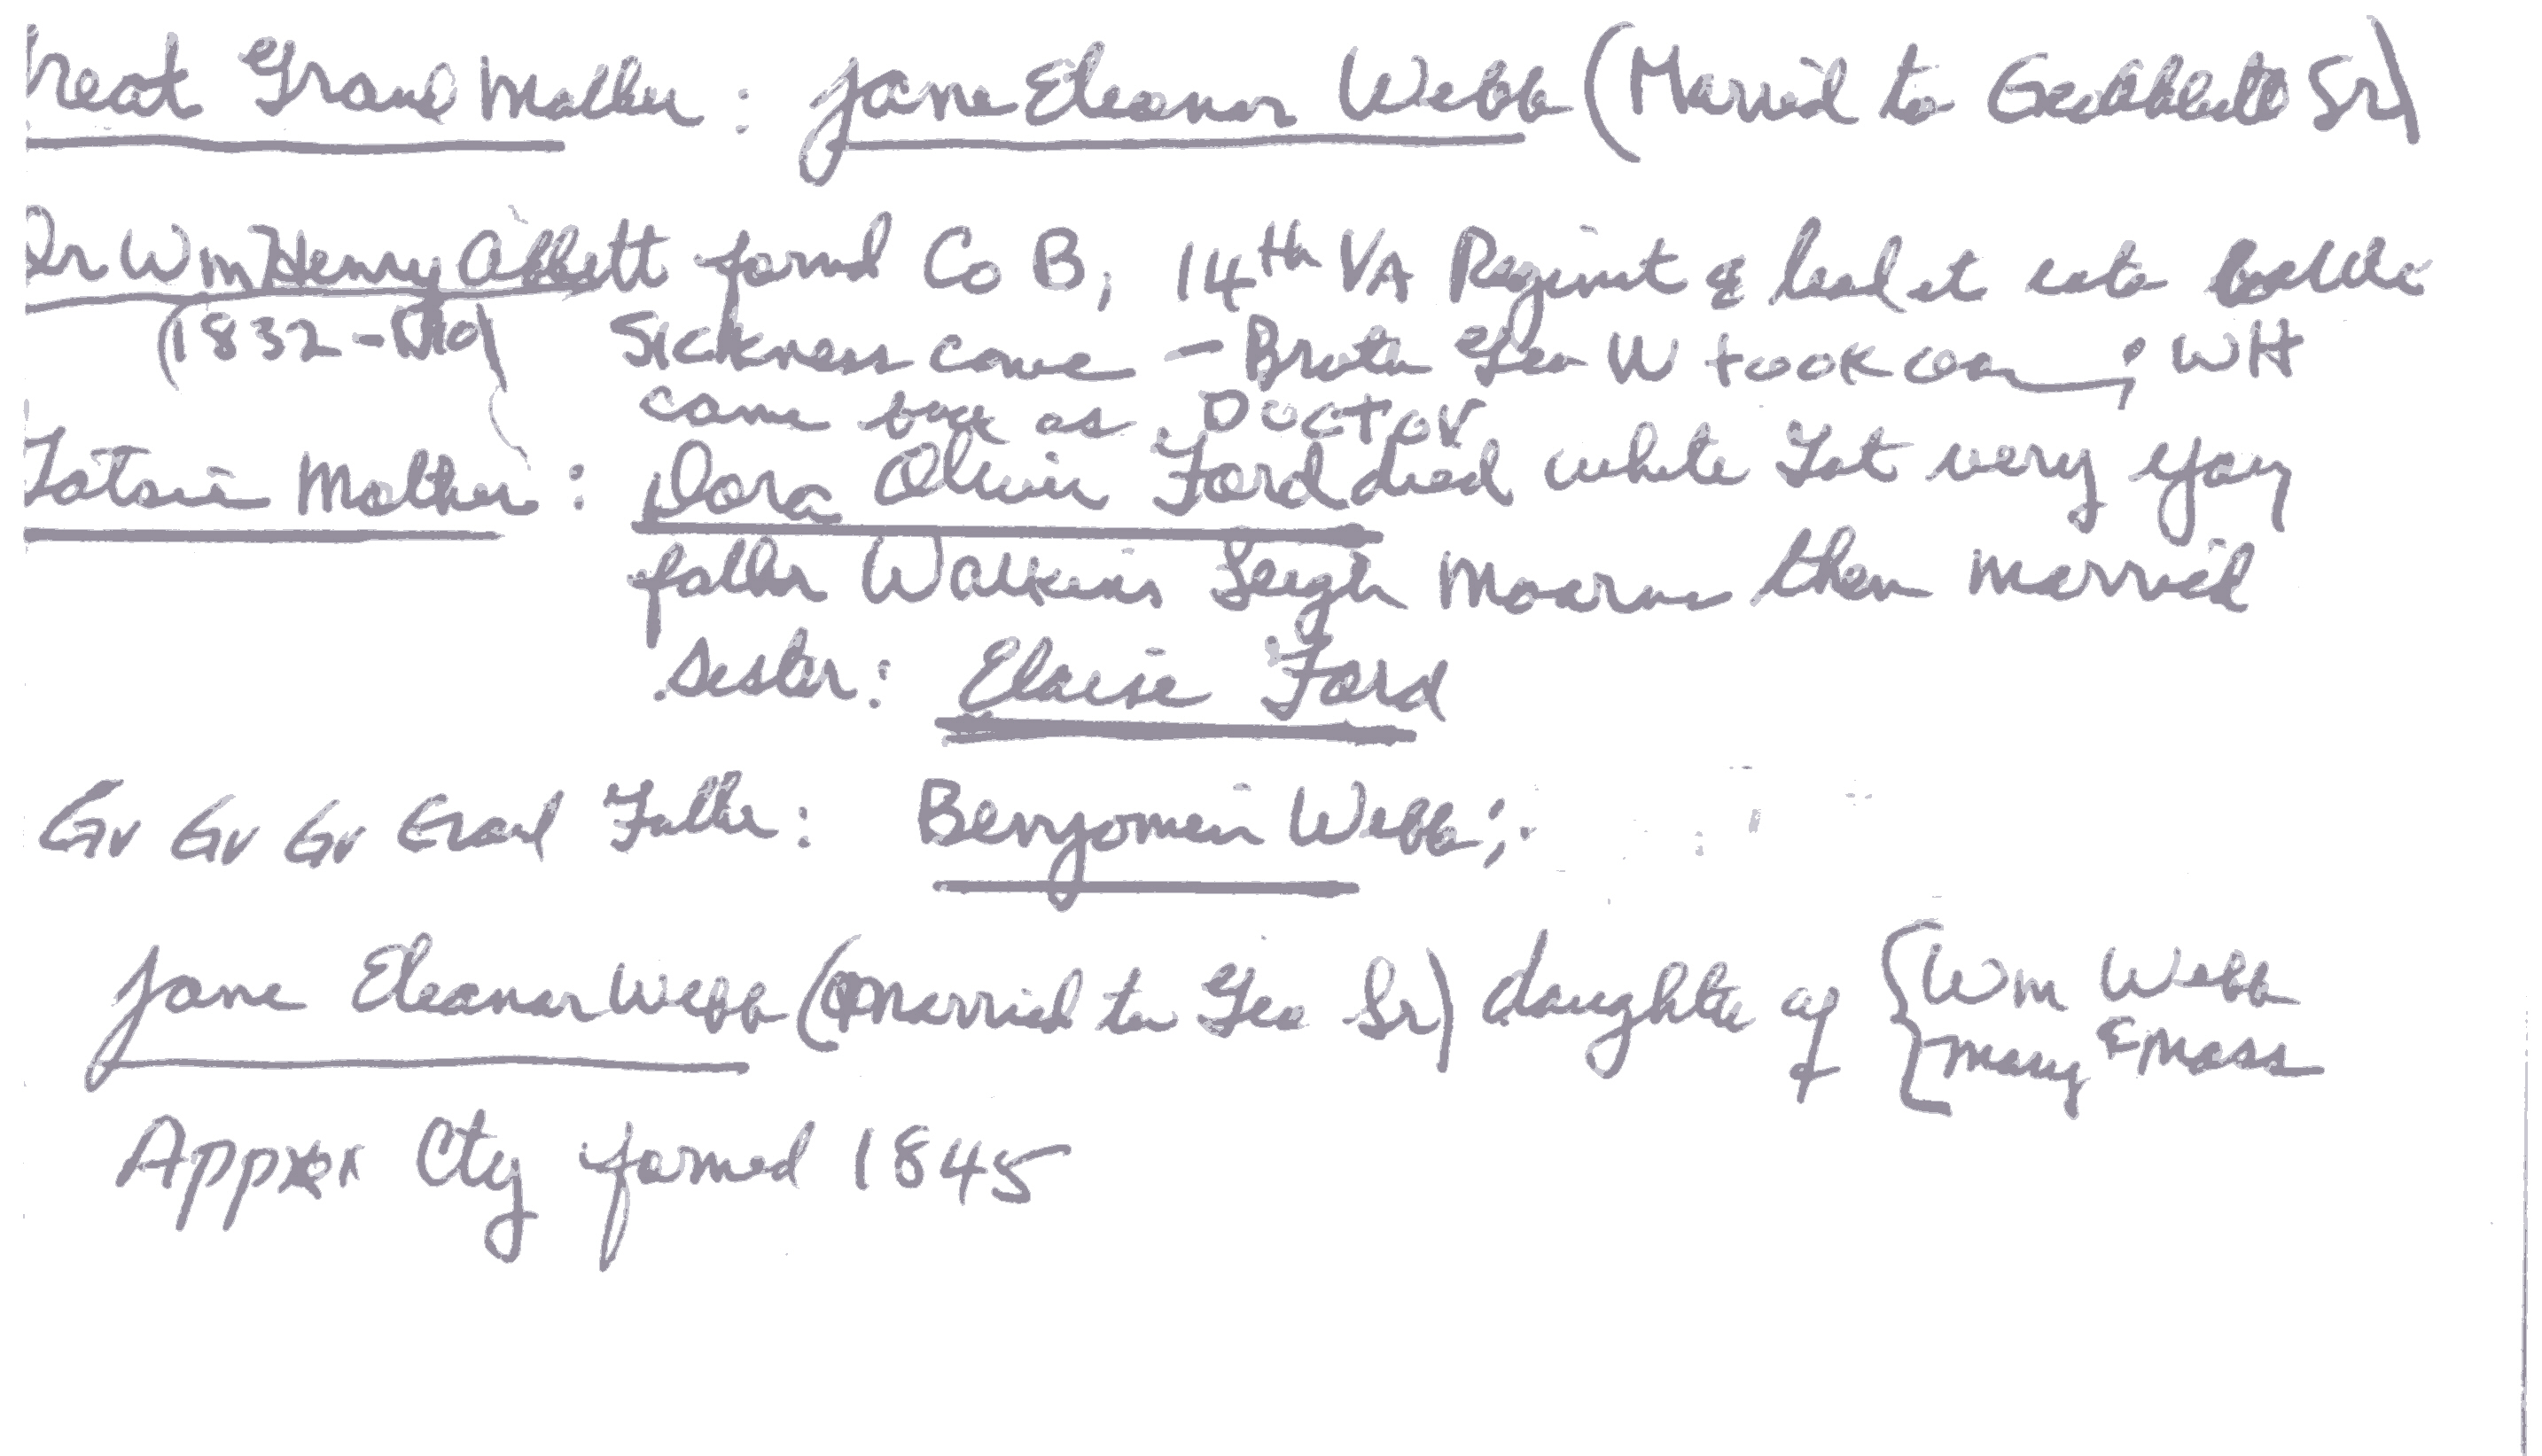 reat Grand Mother : Jane Eleanor Webb (Married to Geo Abbitt Sr)
Dr Wm Henry Abbitt formd Co B, 14th VA Regimt & lead it into battle
(1832- Sickness came - Brother Geo W took over ; WH
came back as Doctor
Tatsie Mother : Dora Olivia Ford died while Tat very young
father Watkins Leigh Moarne then married
sister : Eloise Ford
Gr Gr Gr Grand Father : Benjomin Webb ;
Jane Eleanor Webb (married to Geo Sr) daughter of { Wm Webb
& Mary E Moss
Appox Cty formed 1845